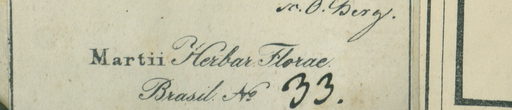 O. Berg.
Martii Herbar. Florae
Brasil. No 33.